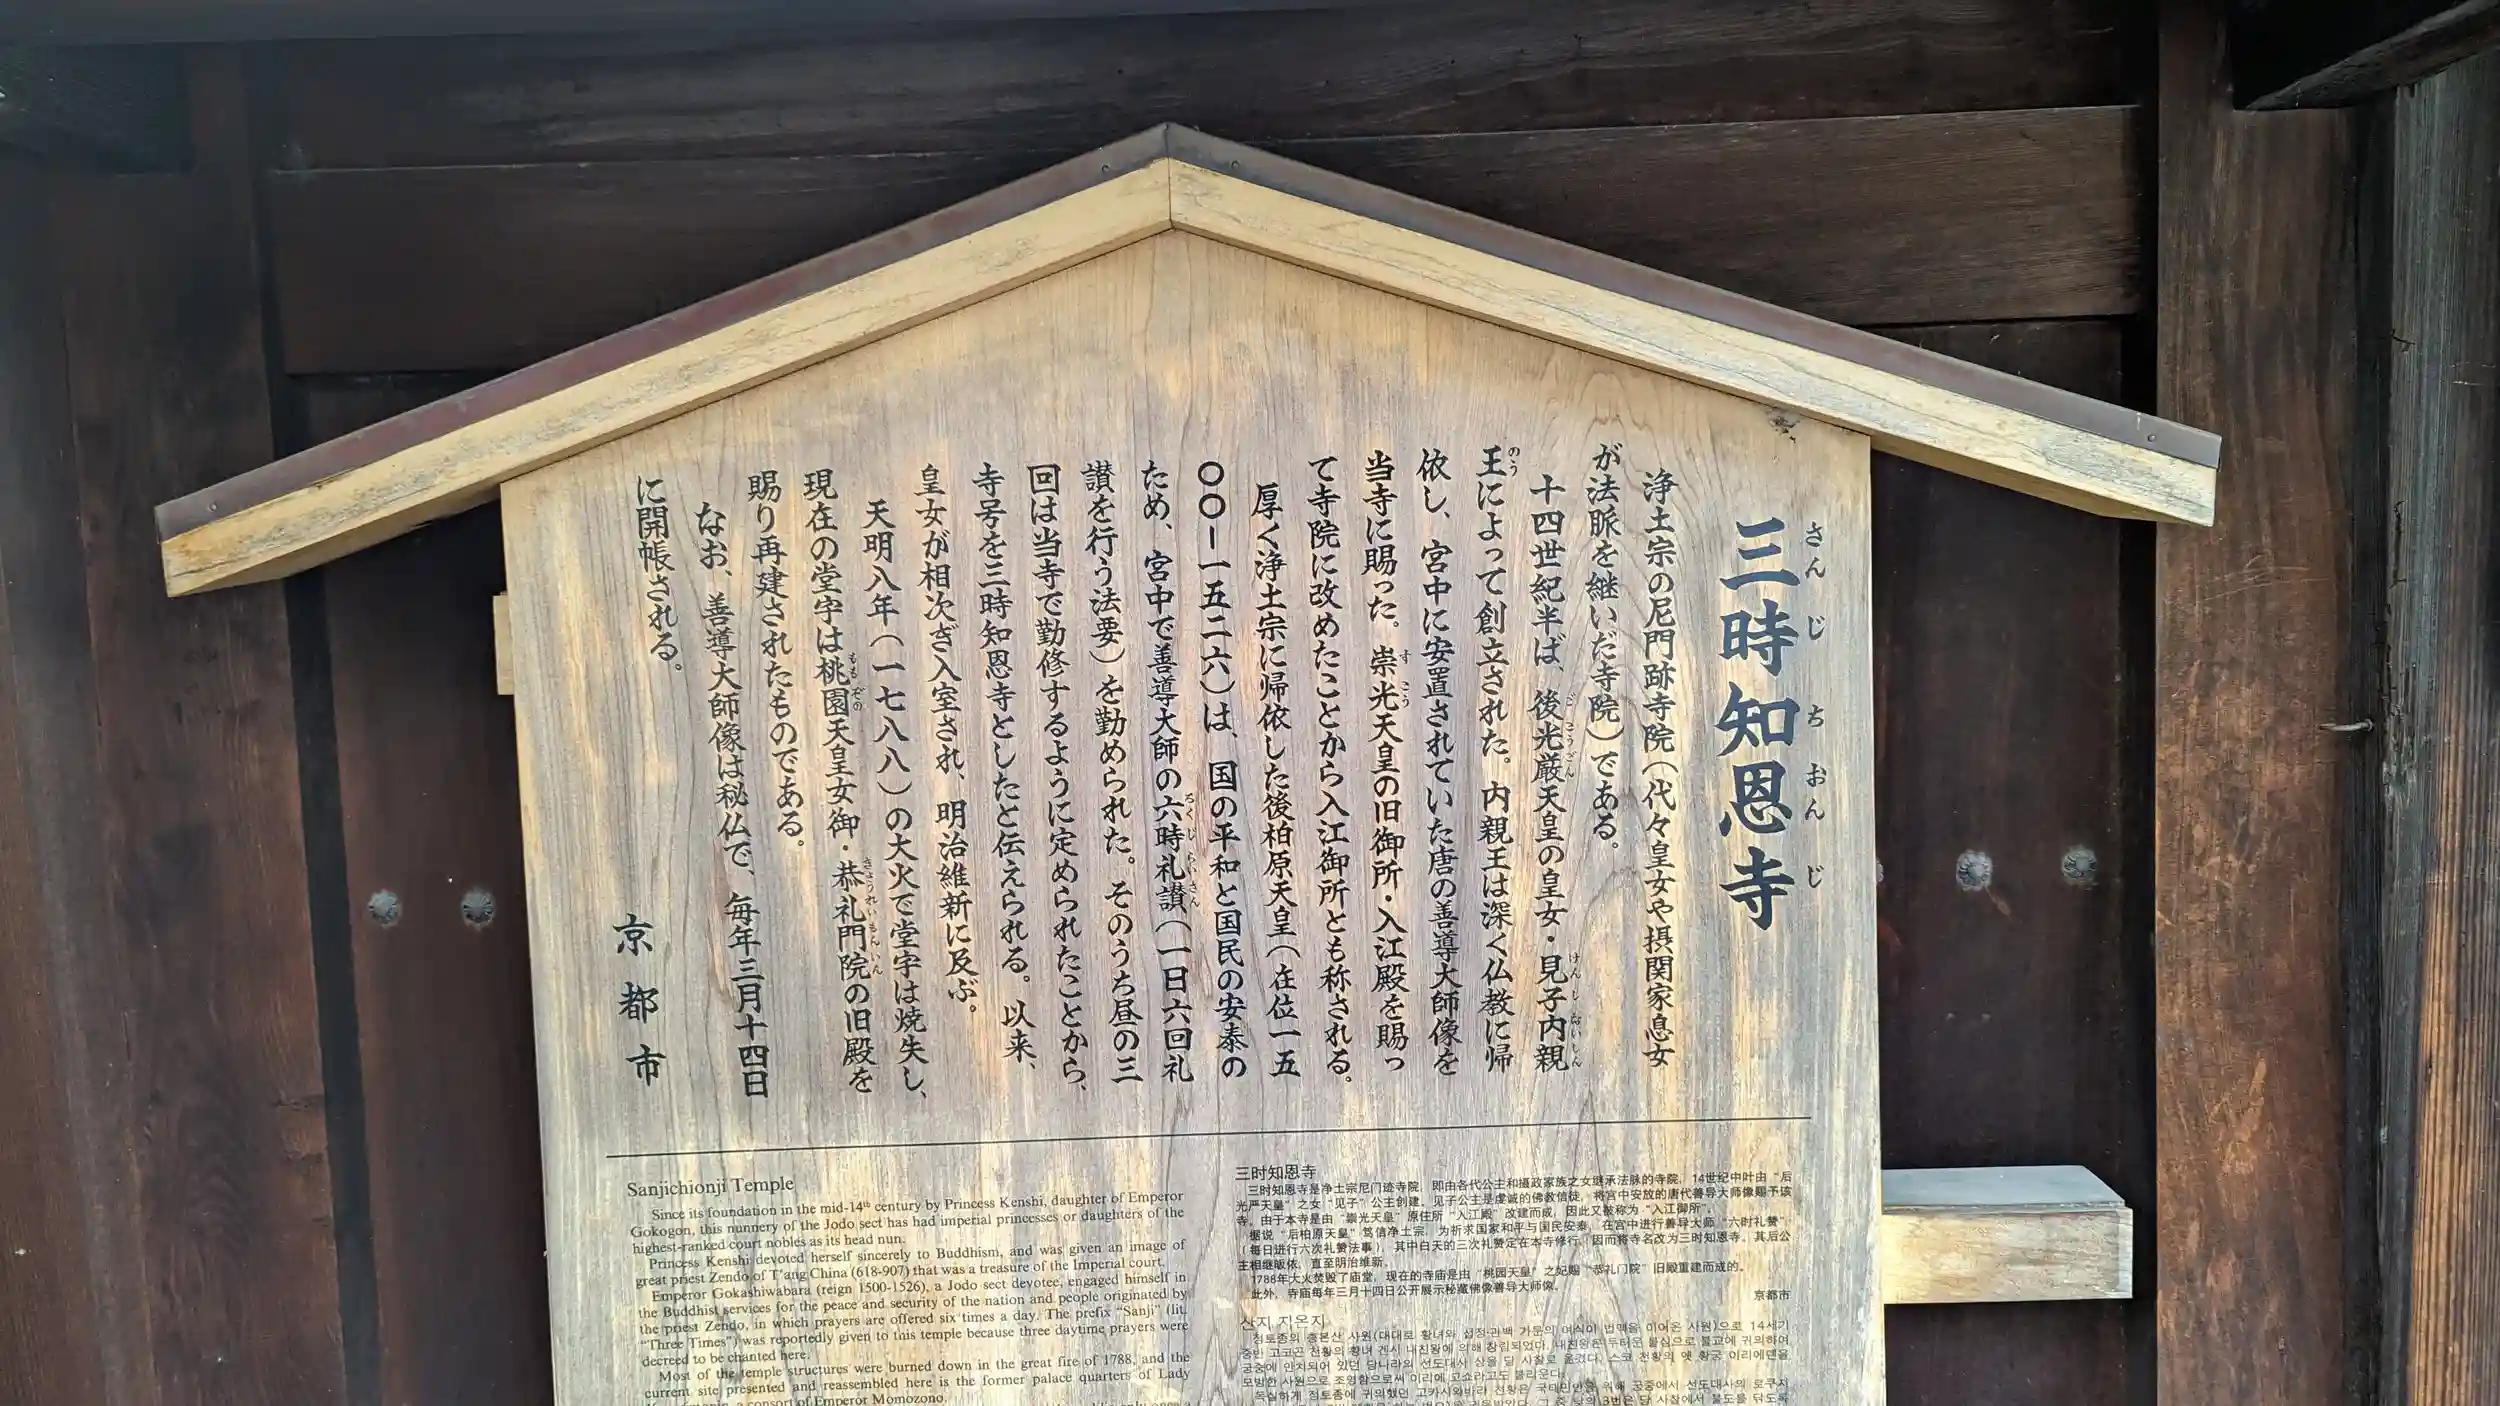 三時知恩寺
さんじちおんじ
浄土宗の尼門跡寺院(代々皇女や摂関家息女
が法脈を継いだ寺院)である。
十四世紀半ば、後光厳天皇の皇女・見子内親
ごこうごん
けんしないしん
王によって創立された。内親王は深く仏教に帰
のう
依し、宮中に安置されていた唐の善導大師像を
当寺に賜った。崇光天皇の旧御所・入江殿を賜っ
すこう
て寺院に改めたことから入江御所とも称される。
厚く浄土宗に帰依した後柏原天皇(在位一五
〇〇-一五二六)は、国の平和と国民の安泰の
ため、宮中で善導大師の六時礼讃(一日六回礼
ろくじらいさん
讃を行う法要)を勤められた。そのうち昼の三
回は当寺で勤修するように定められたことから、
寺号を三時知恩寺としたと伝えられる。以来、
皇女が相次ぎ入室され、明治維新に及ぶ。
天明八年(一七八八)の大火で堂宇は焼失し、
現在の堂宇は桃園天皇女御・恭礼門院の旧殿を
ももぞの
きょうれいもんいん
賜り再建されたものである。
なお、善導大師像は秘仏で、毎年三月十四日
に開帳される。
京都市
Sanjichionji Temple
Since its foundation in the mid-14th century by Princess Kenshi, daughter of Emperor
Gokogon, this nunnery of the Jodo sect has had imperial princesses or daughters of the
highest-ranked court nobles as its head nun.
Princess Kenshi devoted herself sincerely to Buddhism, and was given an image of
great priest Zendo of T'ang China (618-907) that was a treasure of the Imperial court.
Emperor Gokashiwabara (reign 1500-1526), a Jodo sect devotee, engaged himself in
the Buddhist services for the peace and security of the nation and people originated by
the priest Zendo, in which prayers are offered six times a day. The prefix "Sanji" (lit.
"Three Times") was reportedly given to this temple because three daytime prayers were
decreed to be chanted here.
Most of the temple structures were burned down in the great fire of 1788, and the
current site presented and reassembled here is the former palace quarters of Lady
a consort of Emperor Momozono.
三时知恩寺
三时知恩寺是净土宗尼门迹寺院，即由各代公主和摄政家族之女继承法脉的寺院，14世纪中叶由“后
光严天皇”之女“见子”公主创建。见子公主是虔诚的佛教信徒，将宫中安放的唐代善导大师像赐予该
寺。由于本寺是由“崇光天皇”原住所“入江殿”改建而成，因此又被称为“入江御所”。
据说“后柏原天皇”笃信净土宗，为祈求国家和平与国民安泰，在宫中进行善导大师“六时礼赞”
(每日进行六次礼赞法事)，其中白天的三次礼赞定在本寺修行，因而将寺名改为三时知恩寺。其后公
主相继皈依，直至明治维新。
1788年大火焚毁了庙堂，现在的寺庙是由“桃园天皇”之妃赐“恭礼门院”旧殿重建而成的。
此外，寺庙每年三月十四日公开展示秘藏佛像善导大师像。
京都市
산지 지온지
정토종의 총본산 사원(대대로 황녀와 섭정·관백 가문의 여식이 법맥을 이어온 사원)으로 14세기
중반 고코곤 천황의 황녀 겐시 내친왕에 의해 창립되었다. 내친왕은 두터운 불심으로 불교에 귀의하여
궁중에 안치되어 있던 당나라의 선도대사 상을 당 사찰로 옮겼다. 스코 천황의 옛 황궁 이리에덴을